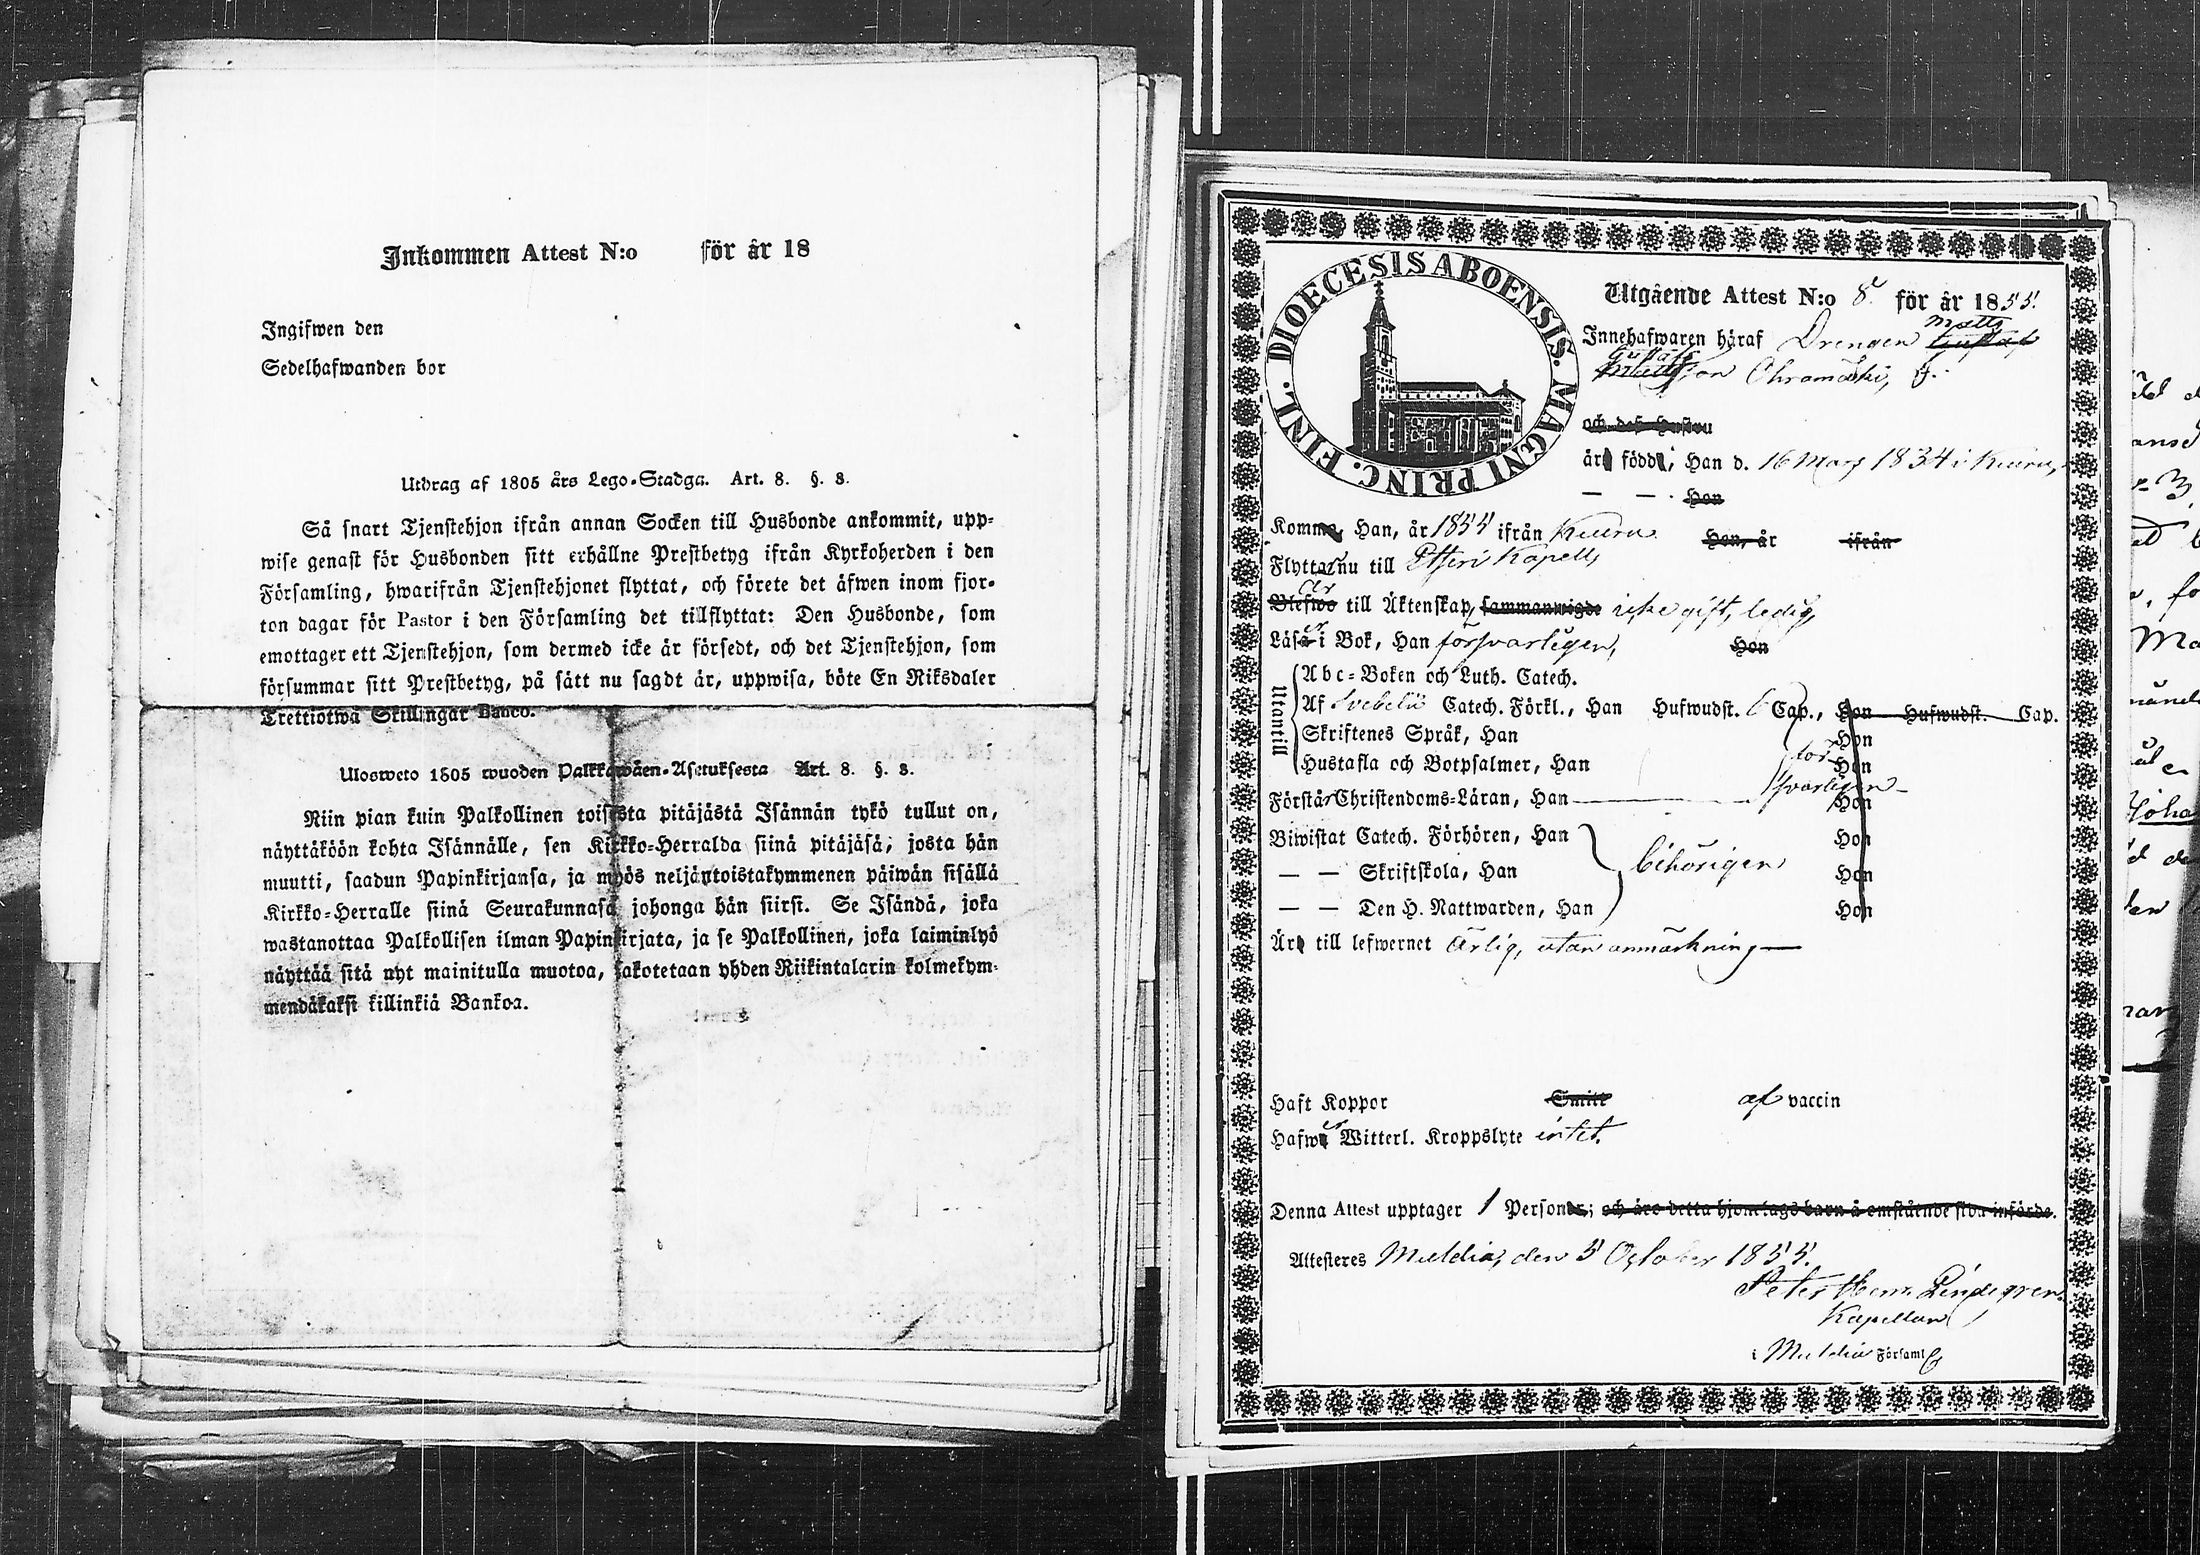 Inkommen Attest N:o för år 18
Ingifwen den
Sedelhafwanden bor
Utdrag af 1805 års Lego-Stadga. Art. 8. §. 8.
Så snart Tjenstehjon ifrån annan Socken till Husbonde ankommit, upp-
wise genast för Husbonden sitt erhållne Prestbetyg ifrån Kyrkoherden i den
Församling, hwarifrån Tjenstehjonet flyttat, och förete det äfwen inom fjor-
ton dagar för Pastor i den Församling det tillflyttat: Den Husbonde, som
emottager ett Tjenstehjon, som dermed icke är försedt, och det Tjenstehjon, som
försummar sitt Prestbetyg, på sätt nu sagdt är, uppwisa, böte En Riksdaler
Trettiotwå Skillingar Banco.
Ulosweto 1805 wuoden Palkkawäen-Asetuksesta Art. 8. §. 8.
Niin pian kuin Palkollinen toisesta pitäjästä Isännän tykö tullut on,
näyttäköön kohta Isännälle, sen Kirkko-Herralda siinä pitäjäsä, josta hän
muutti, saadun Papinkirjansa, ja myös neljäntoistakymmenen päiwän sisällä
Kirkko-Herralle siinä Seurakunnasa johonga hän siirsi. Se Isändä, joka
wastanottaa Palkollisen ilman Papinkirjata, ja se Palkollinen, joka laiminlyö
näyttää sitä nyt mainitulla muotoa, sakotetaan yhden Riikintalarin kolmekym-
mendäkaksi killinkiä Bankoa.
DIOECESIS ABOENSIS. MAGNI PRINC. FINL.
Utgående Attest N:o 8. för år 1855.
Matts
Innehafwaren häraf Drengen Gustaf
Gustafs
Mattsson Ohramäki, f.
och dess Hustru
är född, Han d. 16 Mars 1834 i Kuru,
— — Hon
Komm Han, år 1854 ifrån Kuru Hon, år ifrån
Flyttar nu till Etseri Kapell,
Är
Blefwo till Äktenskap, sammanwigde icke gift, ledig,
Läser i Bok, Han försvarligen, Hon
Utantill
Abc-Boken och Luth. Catech.
Af Svebelii Catech. Förkl., Han Hufwudst. 6 Cap., Hon Hufwudst. Cap.
Skriftenes Språk, Han Hon
Hustafla och Botpsalmer, Han för- Hon
svarligen
Förstår Christendoms-Läran, Han Hon
Biwistat Catech. Förhören, Han Hon
behörigen
— — Skriftskola, Han Hon
— — Den H. Nattwarden, Han Hon
Är till lefwernet Ärlig, utan anmärkning —
Haft Koppor Smitt af vaccin
Hafwer Witterl. Kroppslyte intet.
Denna Attest upptager 1 Personer; och äro detta hjonelags barn å omstående sida införde.
Attesteres Multia, den 5 October 1855.
Peter Henr. Lindegren
Kapellan
i Multia Församl